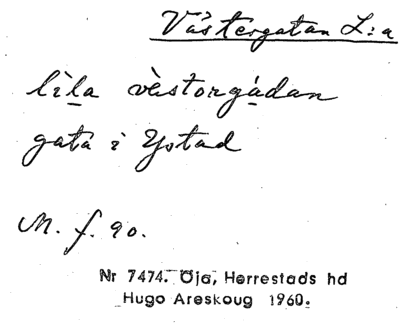 Västergatan L:a
lìla vàstorgádan
gata i Ystad
M. f. 90.
Nr 7474. Öja, Herrestads hd
Hugo Areskoug 1960.